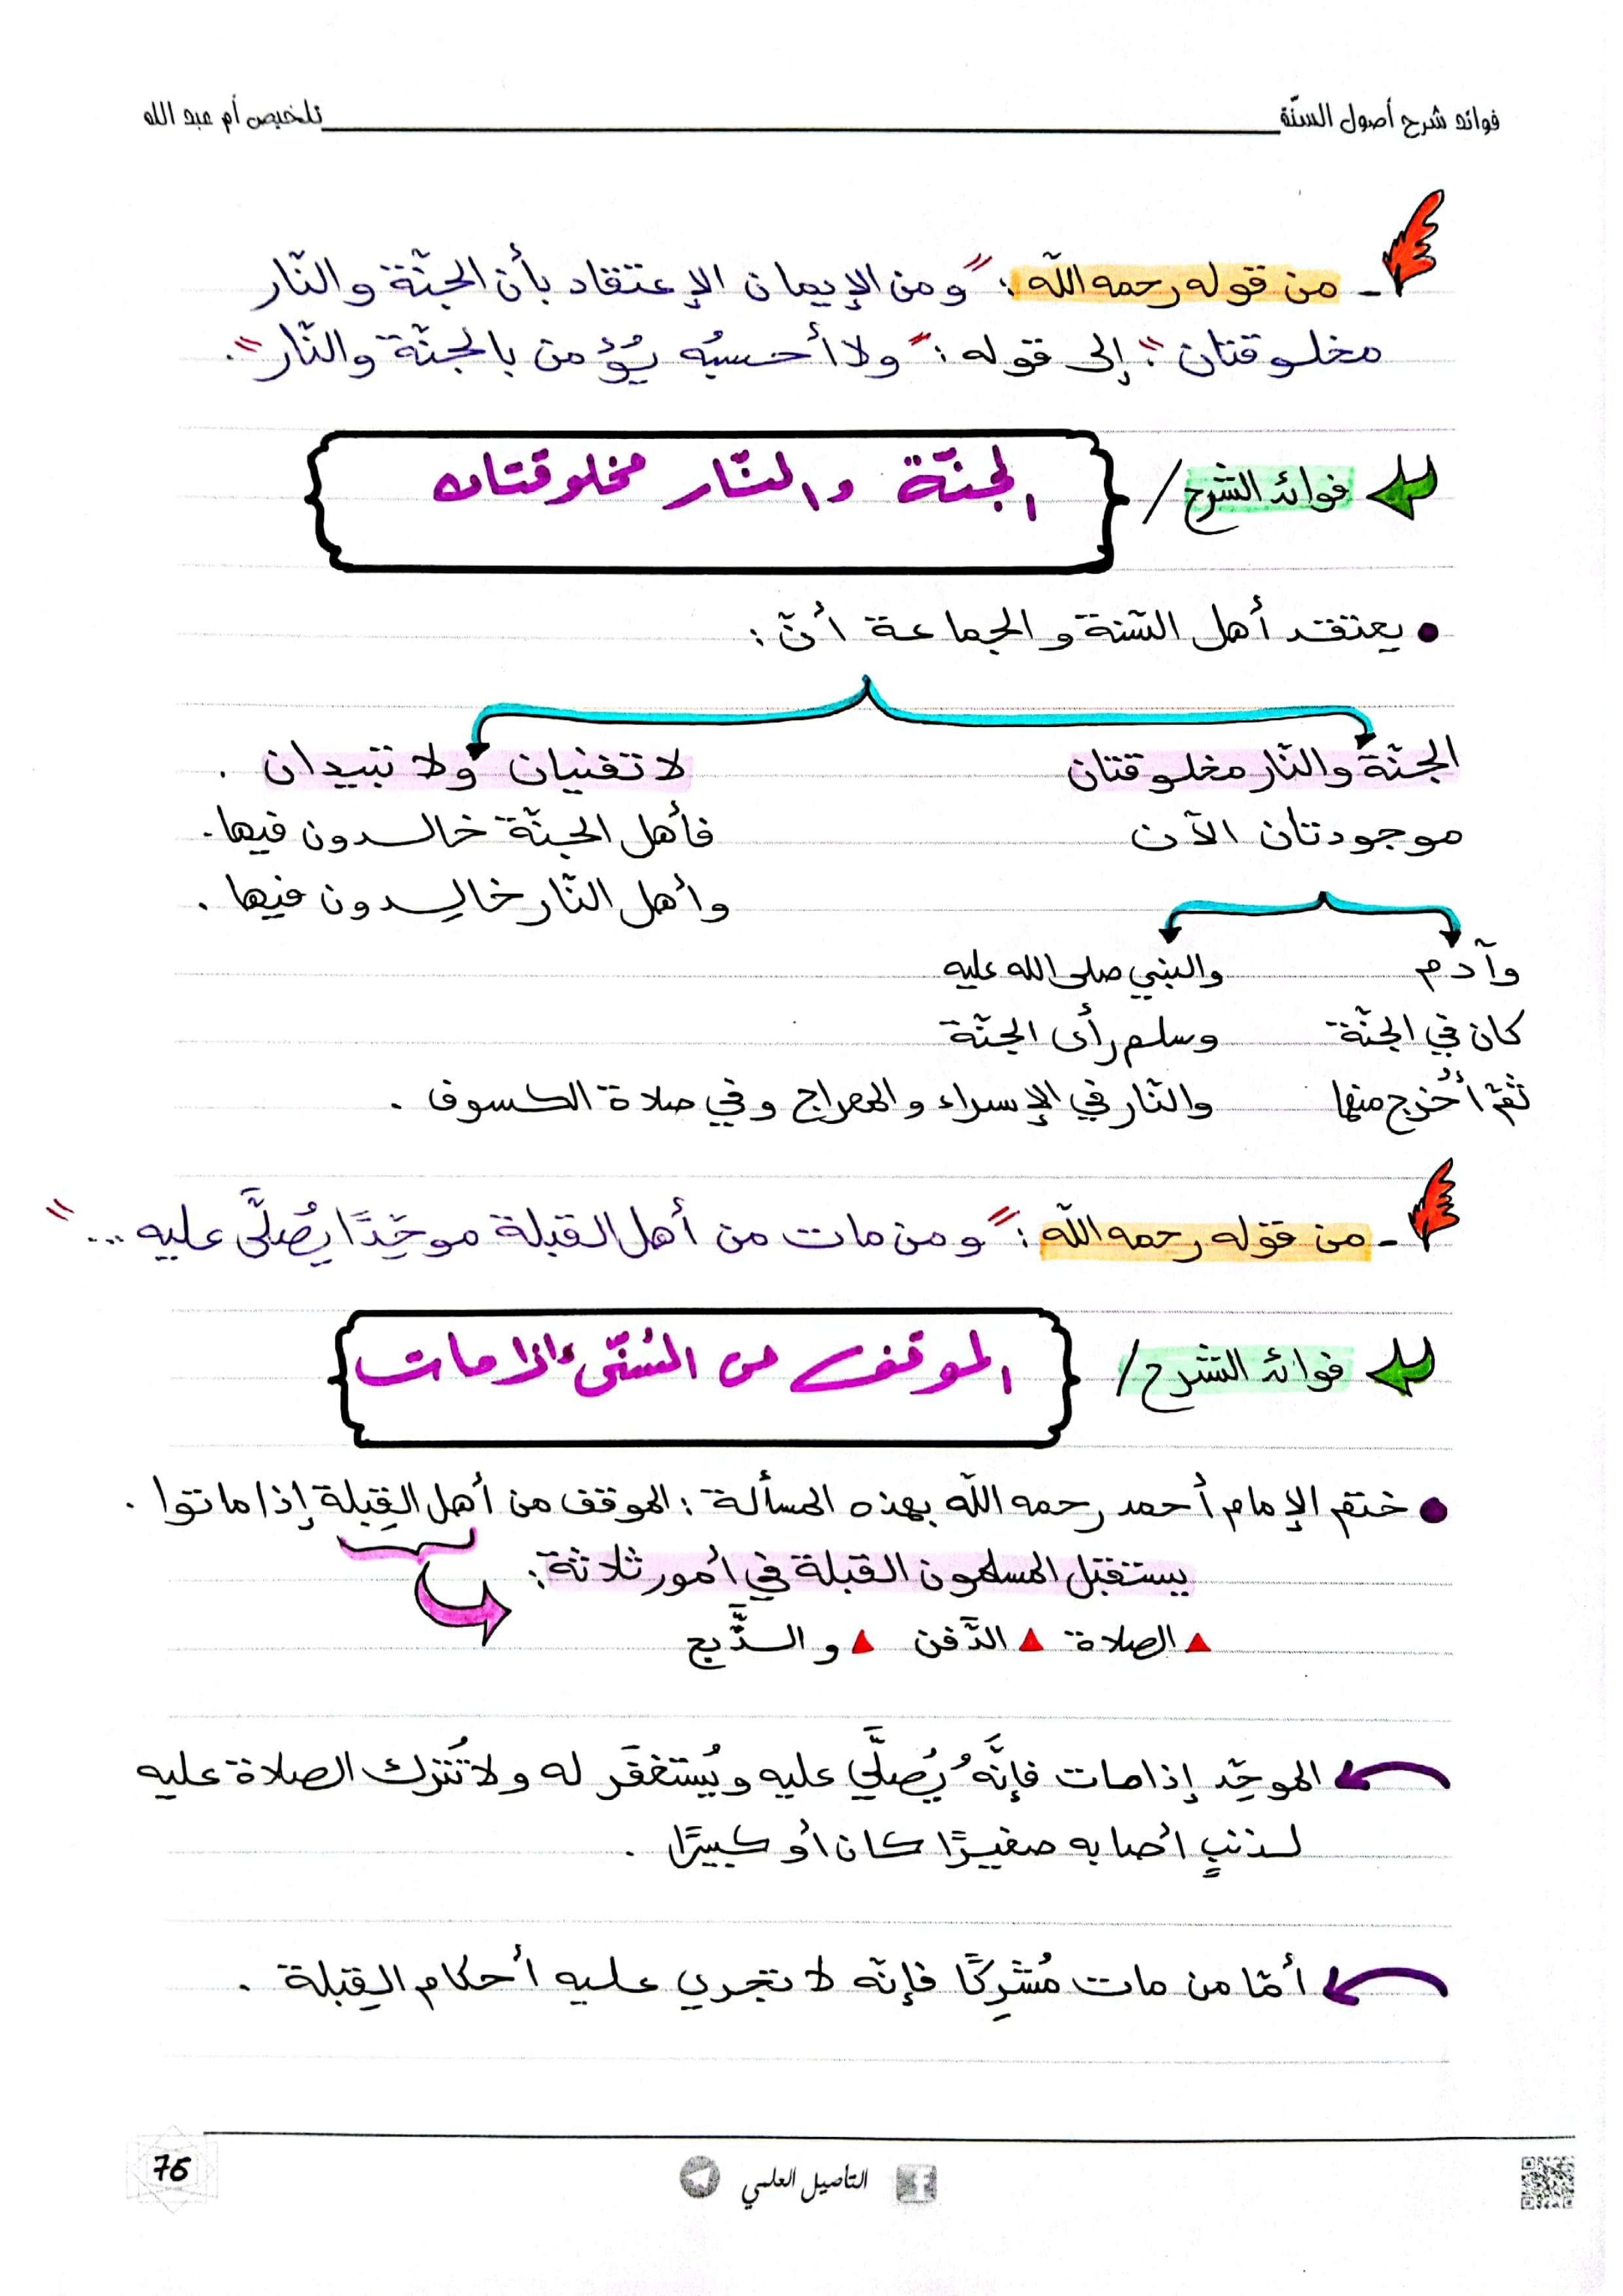 فوائد شرح أصول السنّة
تلخيص أم عبد الله
- من قوله رحمه الله : " ومن الإيمان الإعتقاد بأن الجنّة والنّار
مخلوقتان " ؛ إلى قوله : " ولا أحسبُه يُؤمن بالجنّة والنّار " .
فوائد الشرح /
الجنّة والنّار مخلوقتان
• يعتقد أهل السّنة و الجماعة أنّ :
الجنّة والنّار مخلوقتان
موجودتان الآن
لا تفنيان ولا تبيدان .
فأهل الجنّة خالدون فيها .
وأهل النّار خالِدون فيها .
وآدم
كان في الجنّة
ثمّ أُخرج منها
والنبي صلى الله عليه
وسلم رأى الجنّة
والنّار في الإسراء والمعراج وفي صلاة الكسوف .
- من قوله رحمه الله : " ومن مات من أهل القبلة موحِّدًا يُصلَّى عليه ... "
فوائد الشّرح /
الموقف من السُّنّي إذا مات
• ختم الإمام أحمد رحمه الله بهذه المسألة : الموقف من أهل القِبلة إذا ماتوا .
يستقبل المسلمون القبلة في أمور ثلاثة :
الصلاة الدّفن و الذَّبح
الموحِّد إذا مات فإنَّهُ يُصلَّي عليه ويُستغفَر له ولا تُترك الصلاة عليه
لذنبٍ أصابه صغيرًا كان أو كبيرًا .
أمّا من مات مُشرِكًا فإنّه لا تجري عليه أحكام القِبلة .
التأصيل العلمي
75